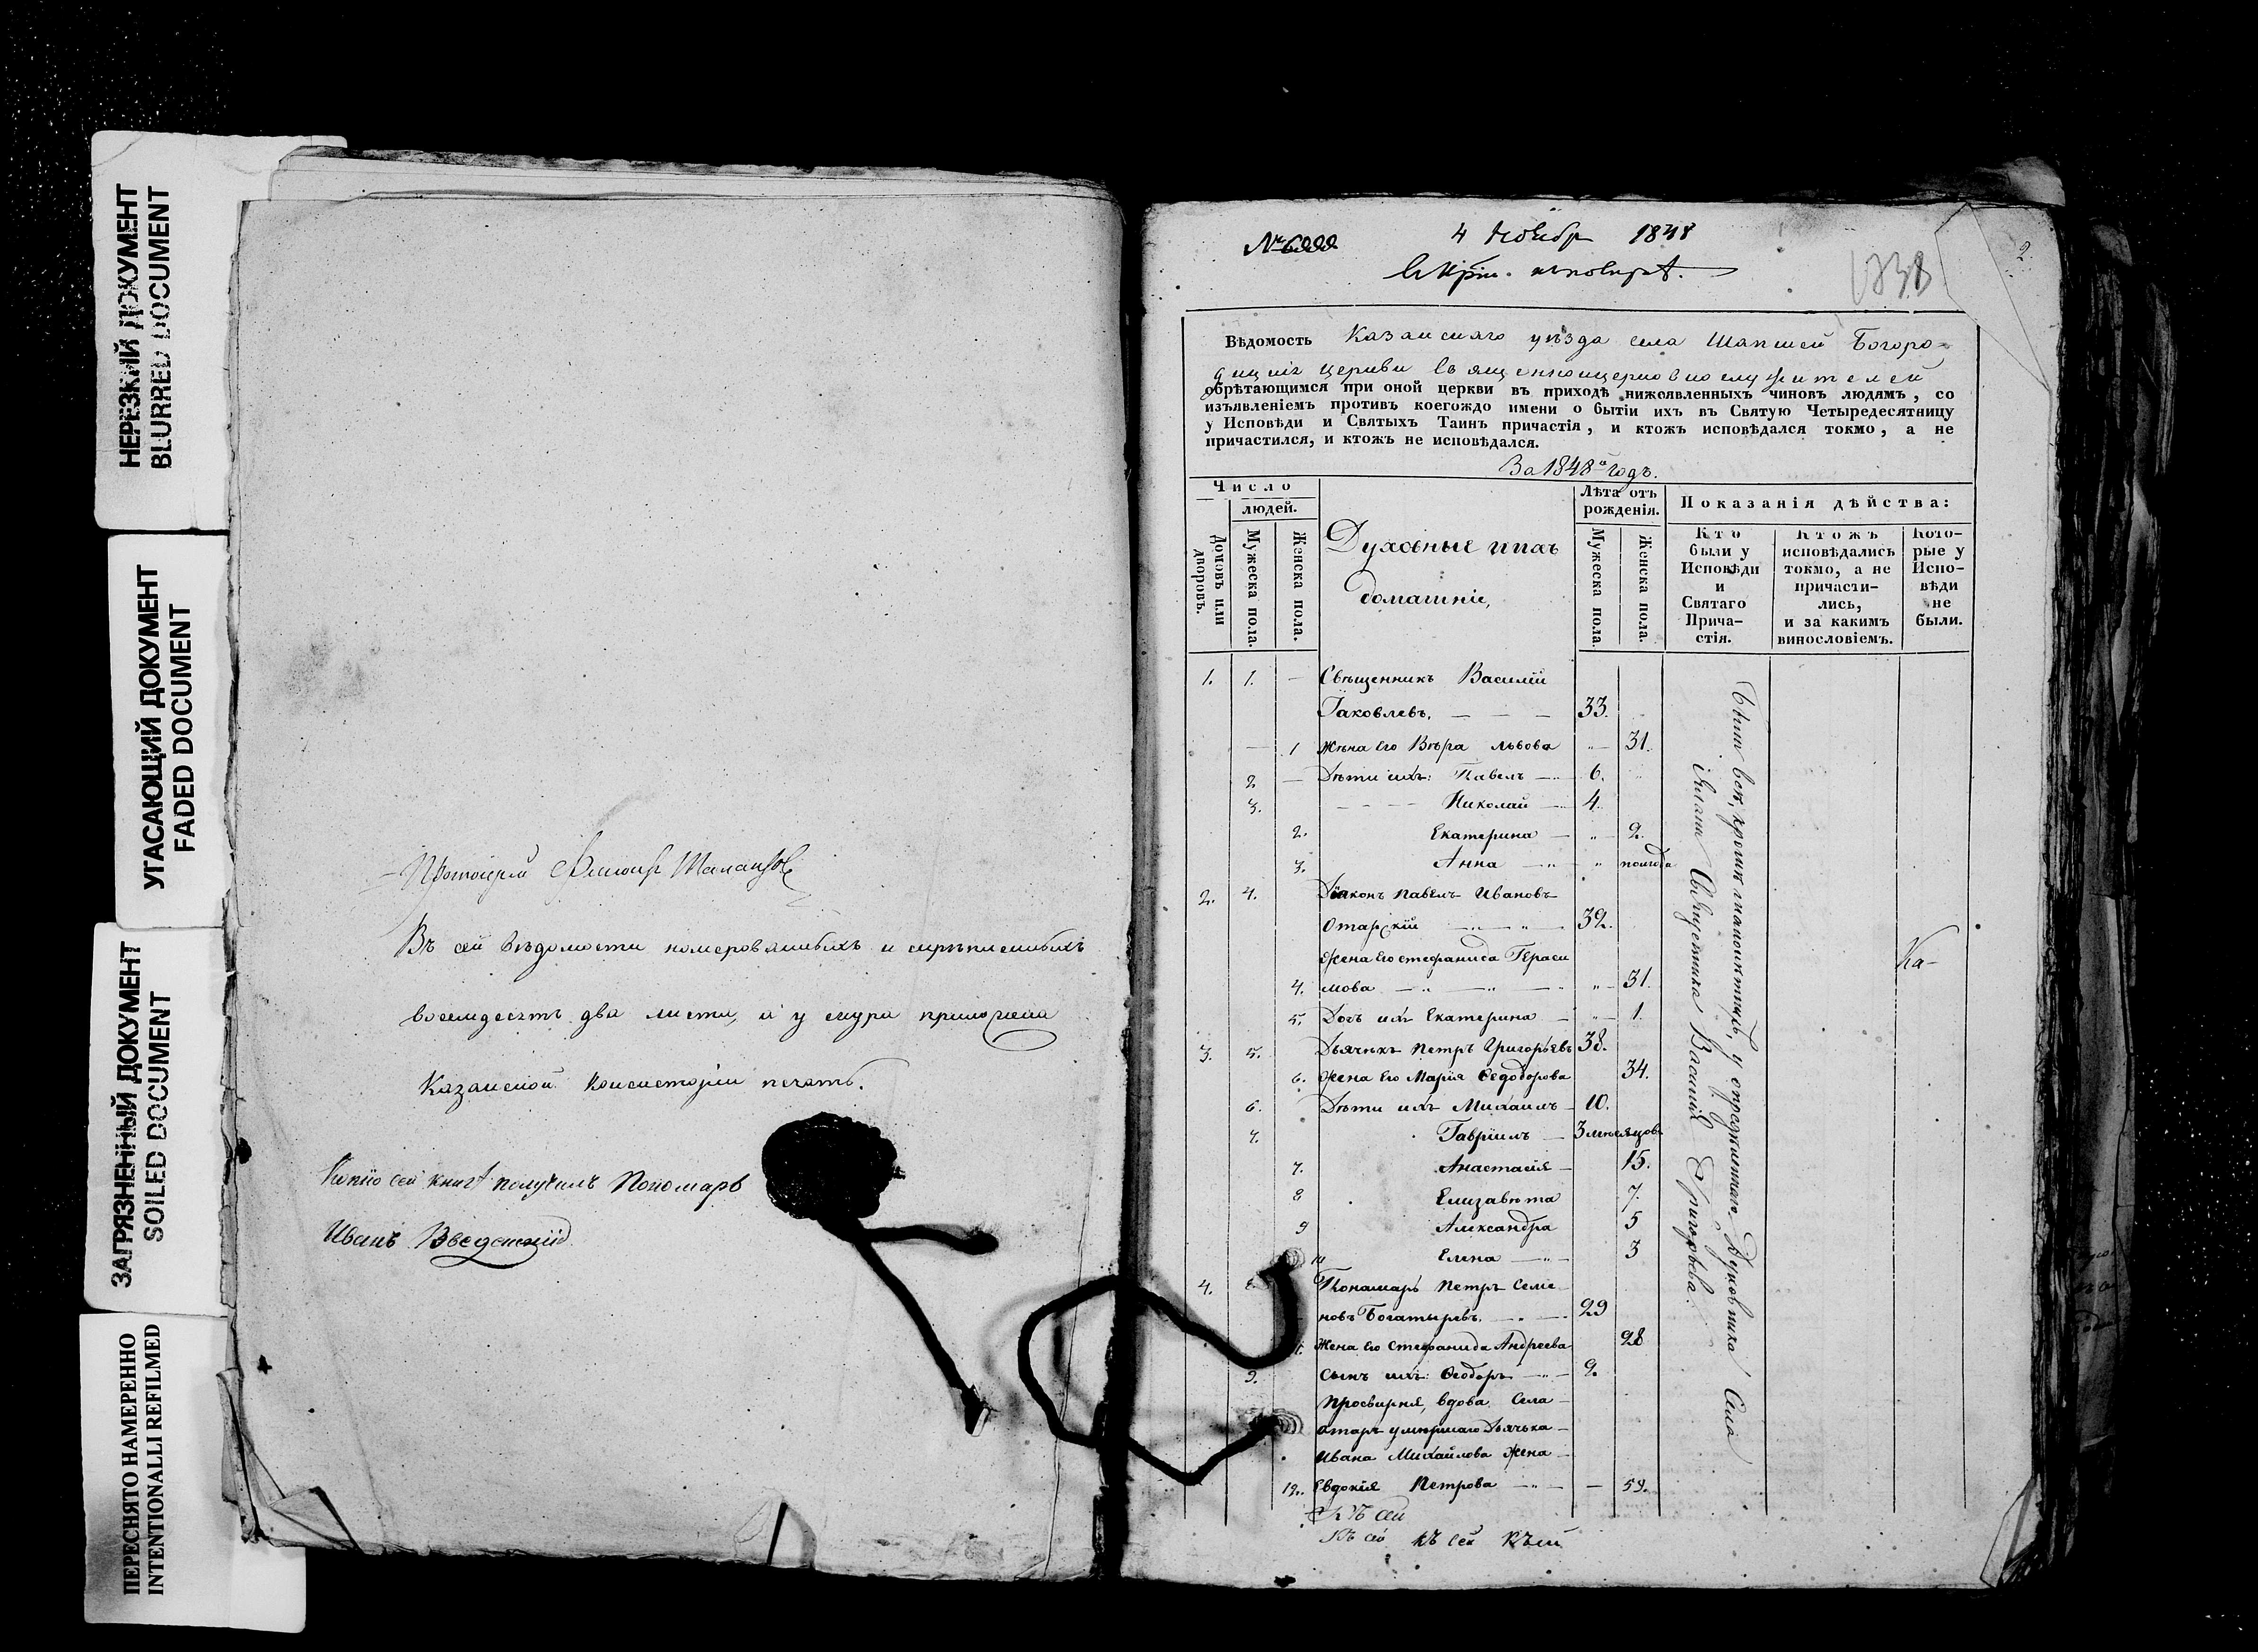 НЕРЕЗКИЙ ДОКУМЕНТ
BLURRED DOCUMENT
УГАСАЮЩИЙ ДОКУМЕНТ
FADED DOCUMENT
ЗАГРЯЗНЕННЫЙ ДОКУМЕНТ
SOILED DOCUMENT
ПЕРЕСНЯТО НАМЕРЕННО
INTENTIONALLI REFILMED
Въ сей вѣдомости номерованныхъ и скрѣпленныхъ
восемдесятъ два листа, а у шнура приложена
Казанской Консисторіи печать.
Копію сей книги получилъ Пономарь
Иванъ Введенскій
4 Ноябр 1848
2.
Вѣдомость Казанскаго уѣзда села Шапшей Богоро-
дицкой церкви священноцерковнослужителей
обрѣтающимся при оной церкви въ приходѣ нижеявленныхъ чиновъ людямъ, со
изъявленіемъ противъ коегождо имени о бытіи ихъ въ Святую Четыредесятницу
у Исповѣди и Святыхъ Таинъ причастія, и ктожъ исповѣдался токмо, а не
причастился, и ктожъ не исповѣдался.
За 1848й годъ.
Число
людей.
Домовъ или дворовъ.
Мужеска пола.
Женска пола.
Духовные и ихъ
домашніе,
Лѣта отъ
рожденія.
Мужеска пола
Женска пола.
Показанія дѣйства:
Кто
были у
Исповѣди
и
Святаго
Прича-
стія.
Ктожъ
исповѣдались
токмо, а не
причасти-
лись,
и за какимъ
винословіемъ.
Кото-
рые у
Испо-
вѣди
не
были.
1. 1. — Священникъ Василій
Іаковлевъ. — — — 33.
— 1 Жена его Вѣра Львова 31.
2 — Дѣти ихъ: Павелъ — 6.
3. Николай — 4.
2. Екатерина — 2.
3. Анна — полгода
2. 4. Діаконъ Павелъ Ивановъ
Отарскій 32.
Жена его Стефанида Гераси
4. мова 31.
5. Дочь ихъ Екатерина — 1.
3. 5. Дьячекъ Петръ Григорьевъ 38.
6. Жена его Марія Ѳеодорова 34.
6. Дѣти ихъ Михаилъ 10.
7. Гавріилъ — 3 мѣсяцовъ
7. Анастасія 15.
8 Елизавета 7.
9 Александра 5
10 Елена 3
4. 8. Пономарь Петръ Семе
новъ Богатыревъ. 29
Жена его Стефанида Андреева 28
9. Сынъ ихъ: Ѳеодоръ 2.
Просвирня, вдова Села
Отаръ умершаго Дьячька
Ивана Михайлова жена
12. Евдокія Петрова — 59.
Василія Григорьева.
Ка-
Къ сей
Къ сей къ сей къ сей